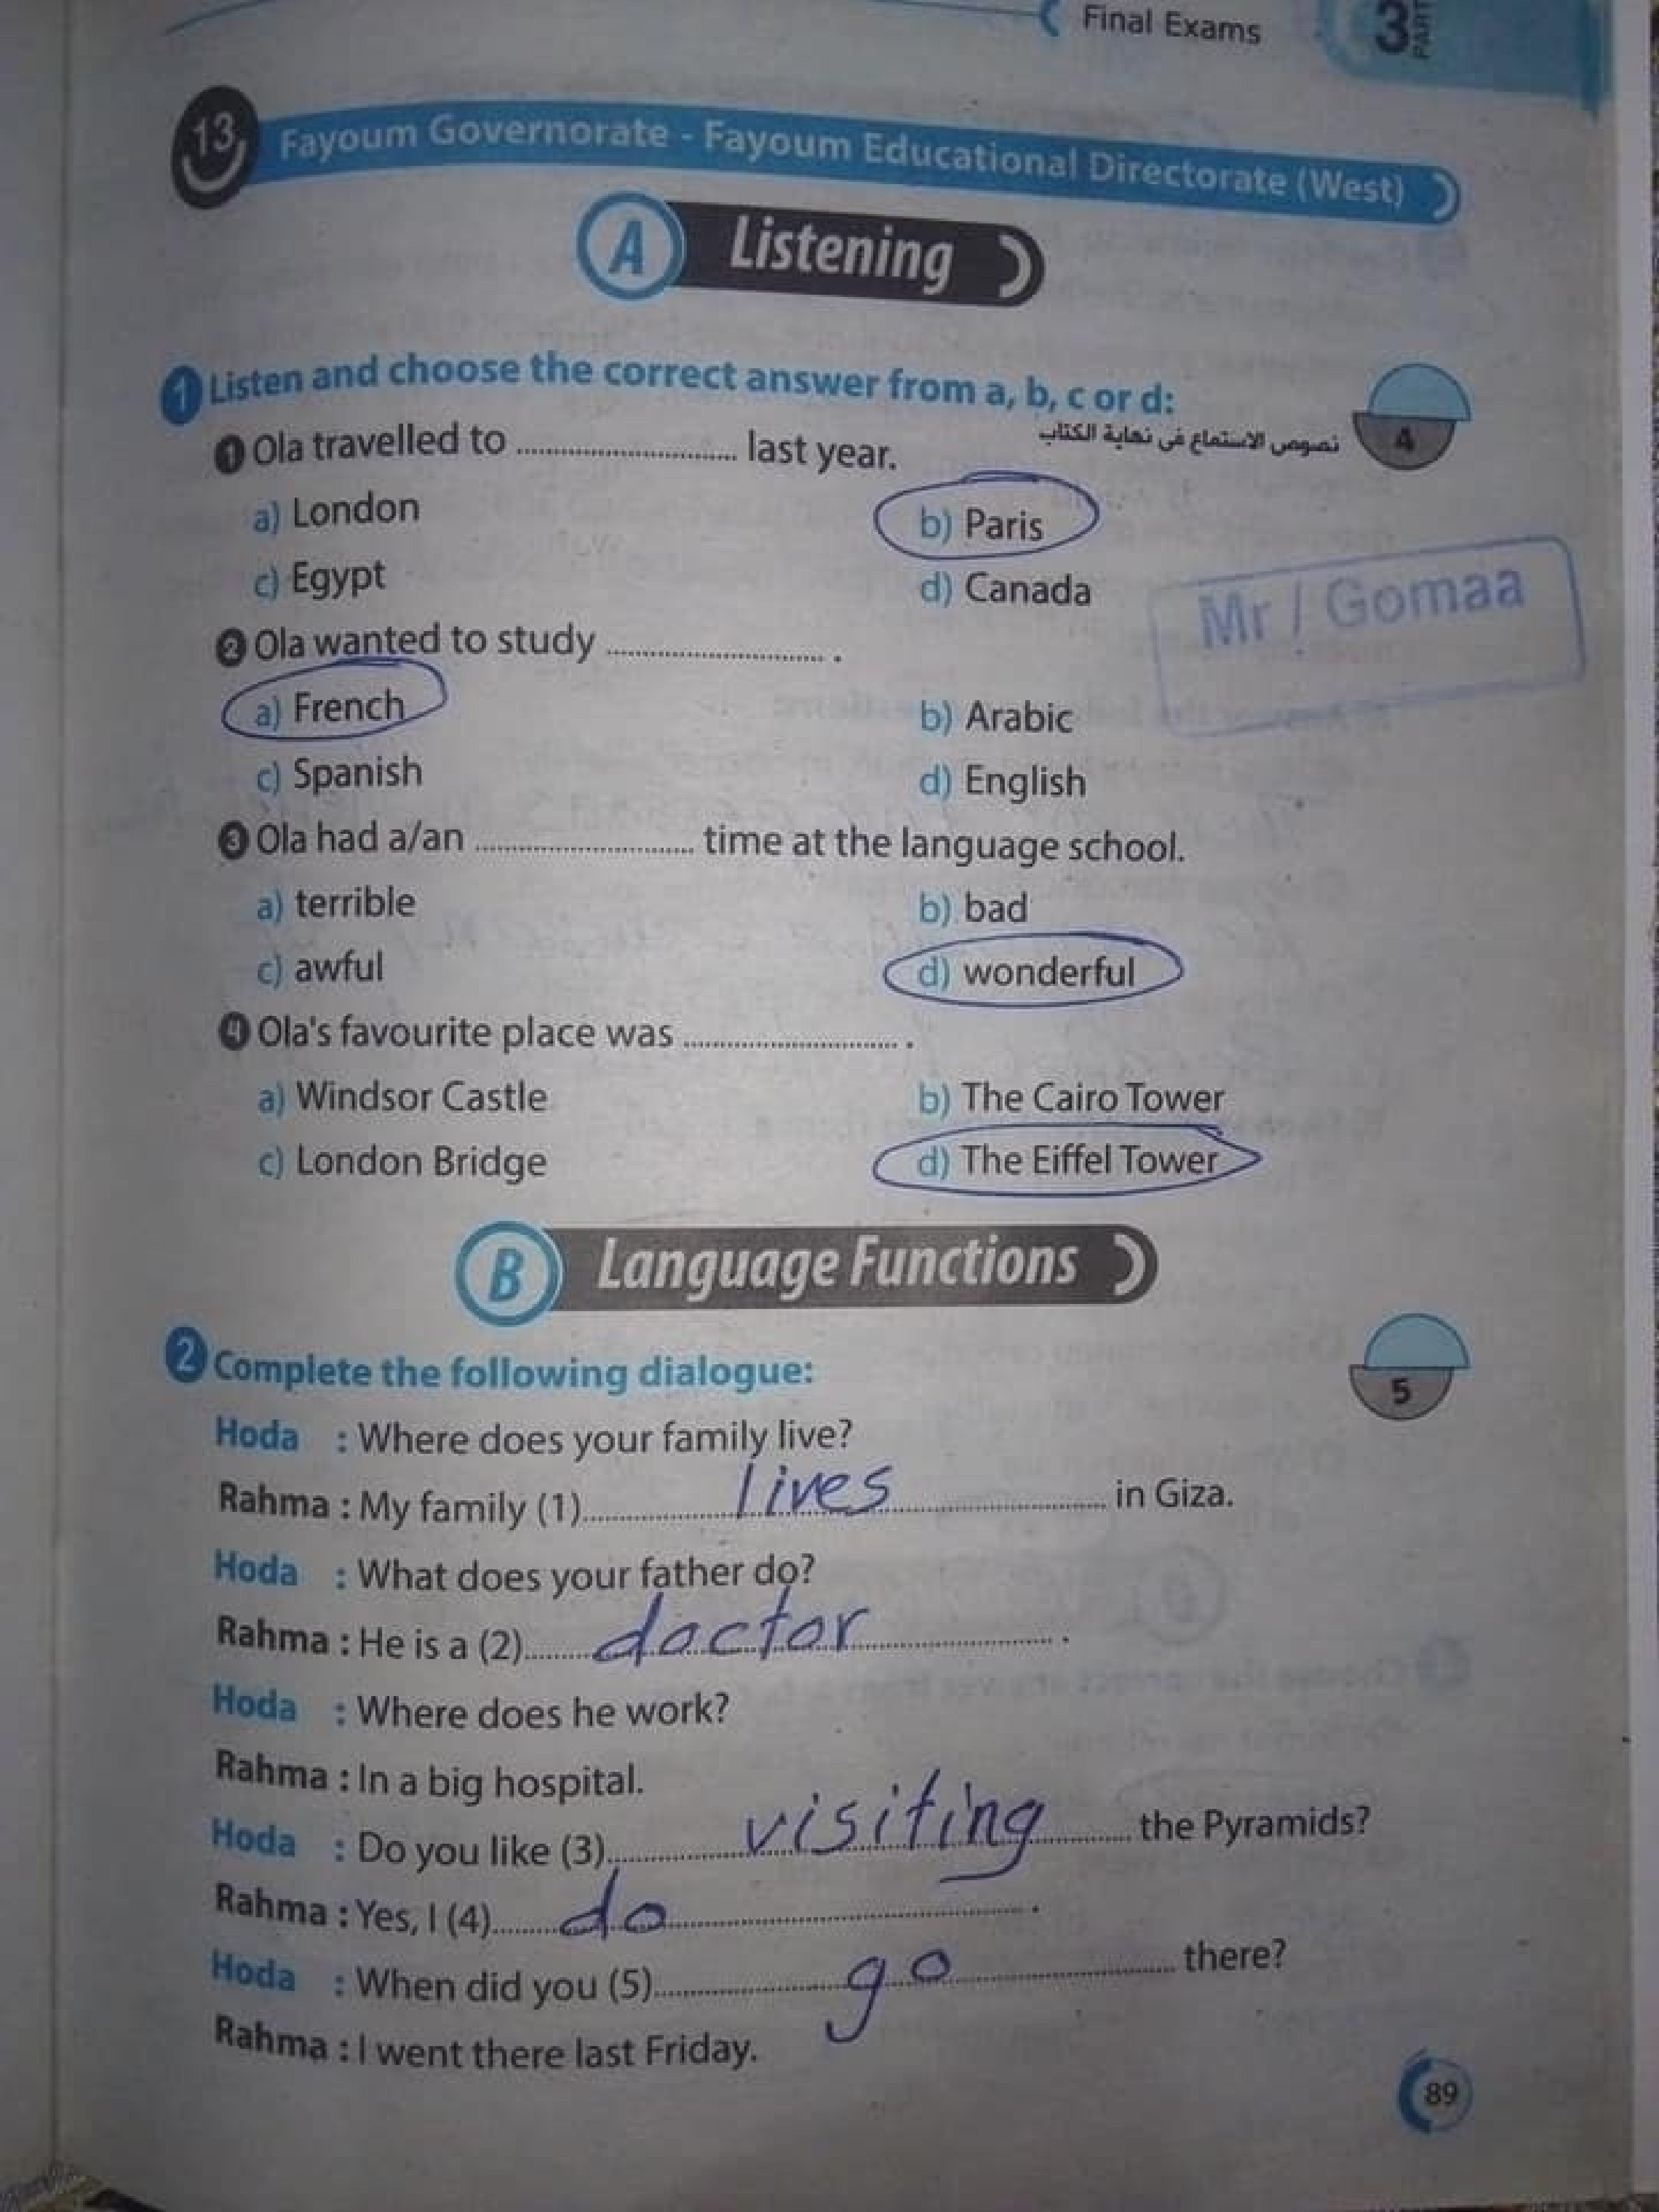 Final Exams
3 PART
13 Fayoum Governorate - Fayoum Educational Directorate (West)
A Listening
1 Listen and choose the correct answer from a, b, c or d:
4
نصوص الاستماع فى نهاية الكتاب
1 Ola travelled to .............................. last year.
a) London b) Paris
c) Egypt d) Canada
Mr / Gomaa
2 Ola wanted to study .............................. .
a) French b) Arabic
c) Spanish d) English
3 Ola had a/an .............................. time at the language school.
a) terrible b) bad
c) awful d) wonderful
4 Ola's favourite place was .............................. .
a) Windsor Castle b) The Cairo Tower
c) London Bridge d) The Eiffel Tower
B Language Functions
2 Complete the following dialogue:
5
Hoda : Where does your family live?
Rahma : My family (1) lives in Giza.
Hoda : What does your father do?
Rahma : He is a (2) doctor .
Hoda : Where does he work?
Rahma : In a big hospital.
Hoda : Do you like (3) visiting the Pyramids?
Rahma : Yes, I (4) do .
Hoda : When did you (5) go there?
Rahma : I went there last Friday.
89